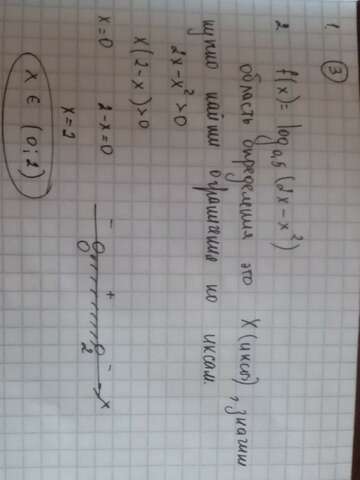 1. ③
2 f(x) = log₀,₅ (2x - x²)
область определения это X (иксы), значит
нужно найти ограничения по иксам.
2x - x² > 0
x(2-x) > 0
x=0 2-x=0
x=2
- + -
0 2 x
x ∈ (0; 2)